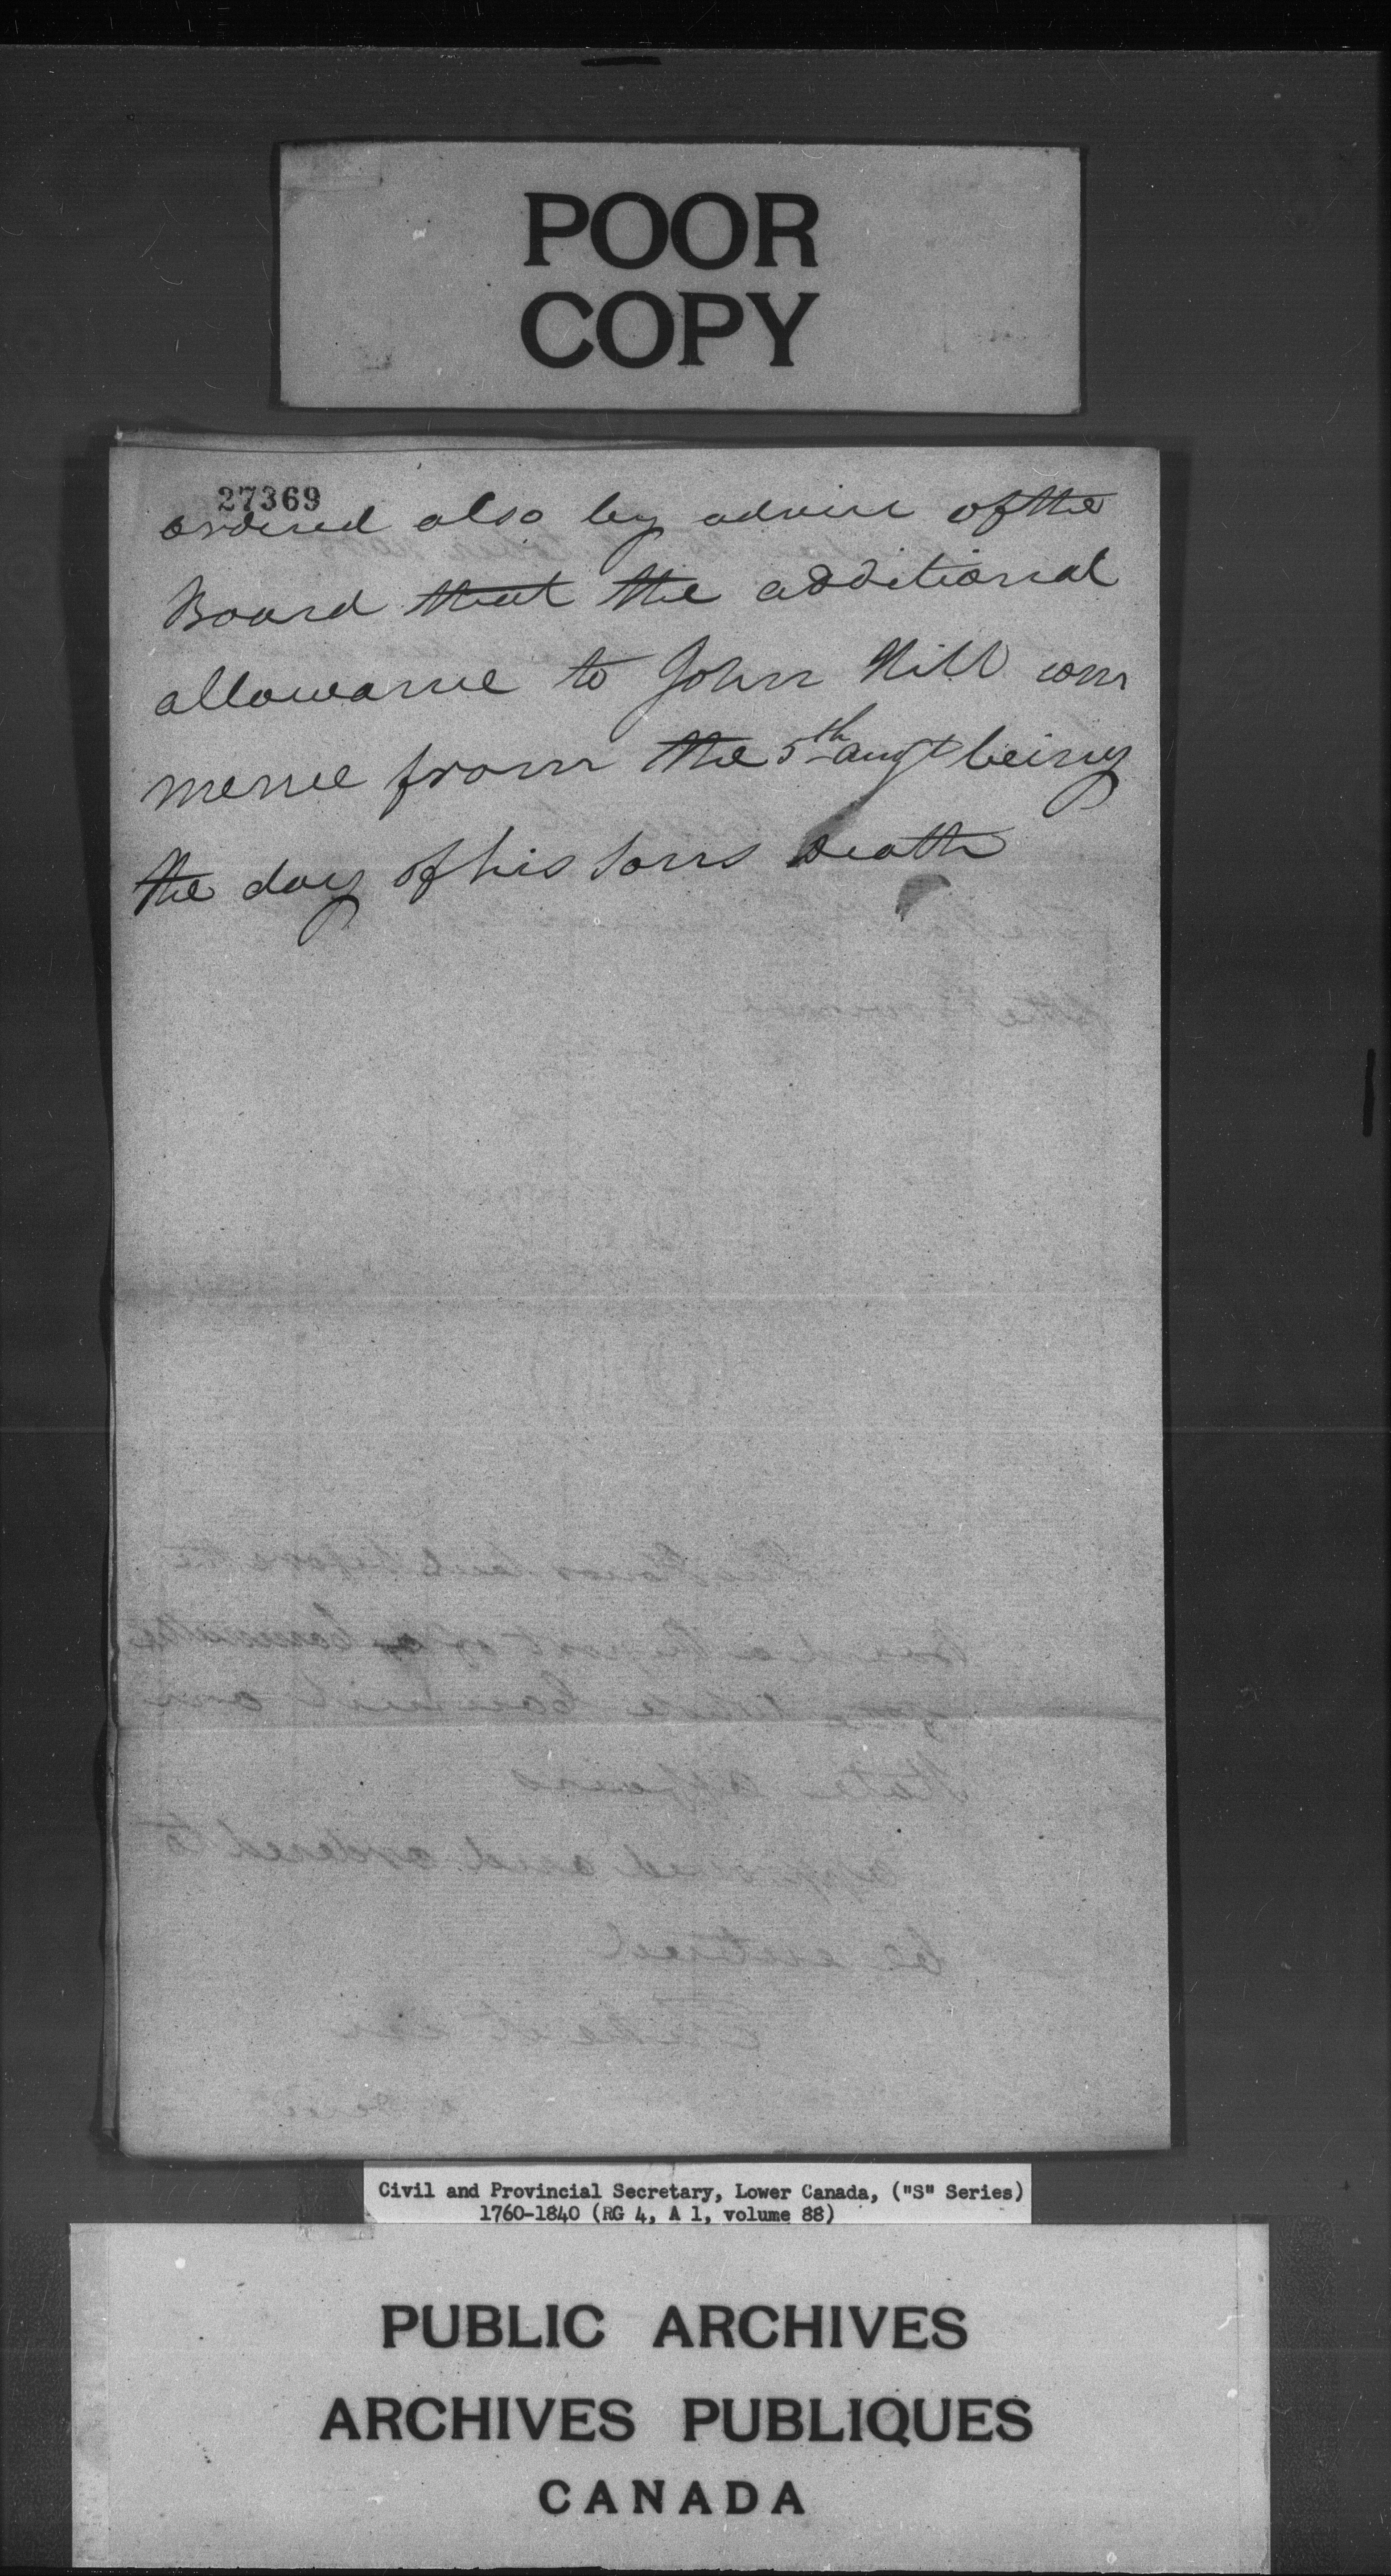 POOR
COPY
27369
ordered also by advice of the
Board that the additional
allowance to John Hill com
mence from the 5th augt being
the day of his sons Death
Civil and Provincial Secretary, Lower Canada, ("S" Series)
1760-1840 (RG 4, A 1, volume 88)
PUBLIC ARCHIVES
ARCHIVES PUBLIQUES
CANADA